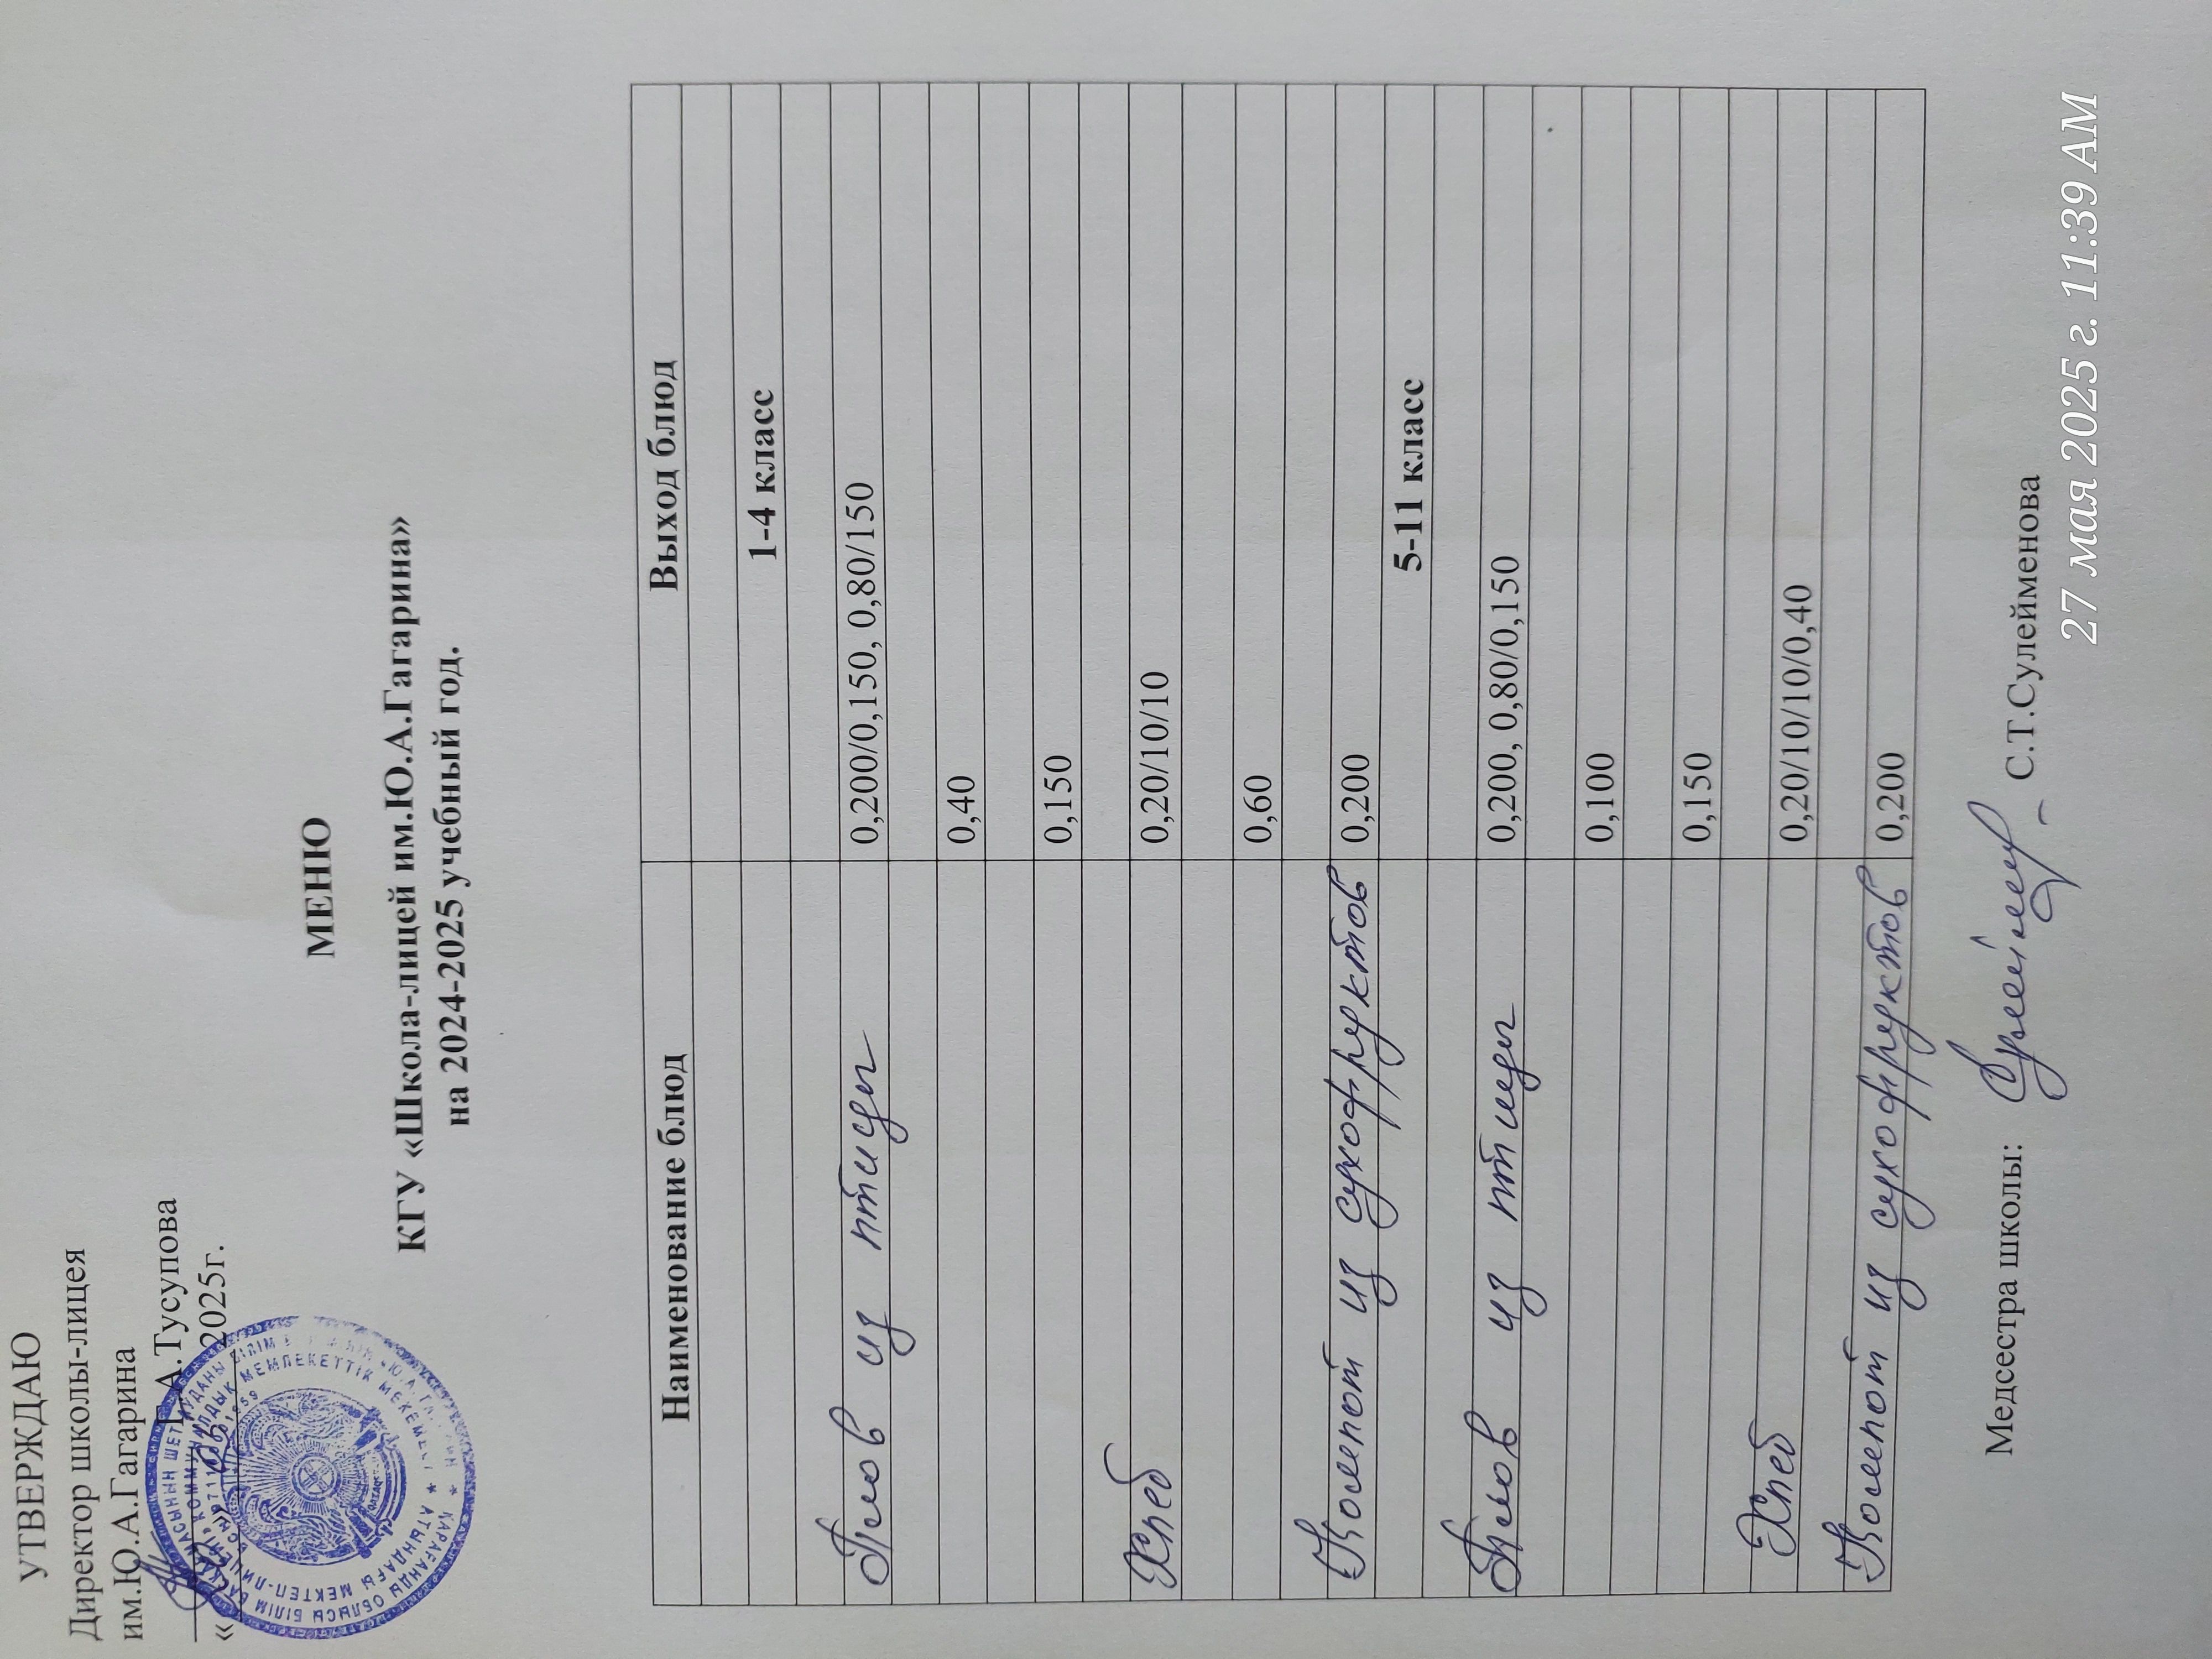 УТВЕРЖДАЮ
Директор школы-лицея
им.Ю.А.Гагарина
Г.А.Тусупова
« » 05 2025г.
МЕНЮ
КГУ «Школа-лицей им.Ю.А.Гагарина»
на 2024-2025 учебный год.
Наименование блюд Выход блюд
1-4 класс
Плов из птицы 0,200/0,150, 0,80/150
0,40
0,150
Хлеб 0,20/10/10
0,60
Компот из сухофруктов 0,200
5-11 класс
Плов из птицы 0,200, 0,80/0,150
0,100
0,150
Хлеб 0,20/10/10/0,40
Компот из сухофруктов 0,200
Медсестра школы: С.Т.Сулейменова
27 мая 2025 г. 11:39 AM